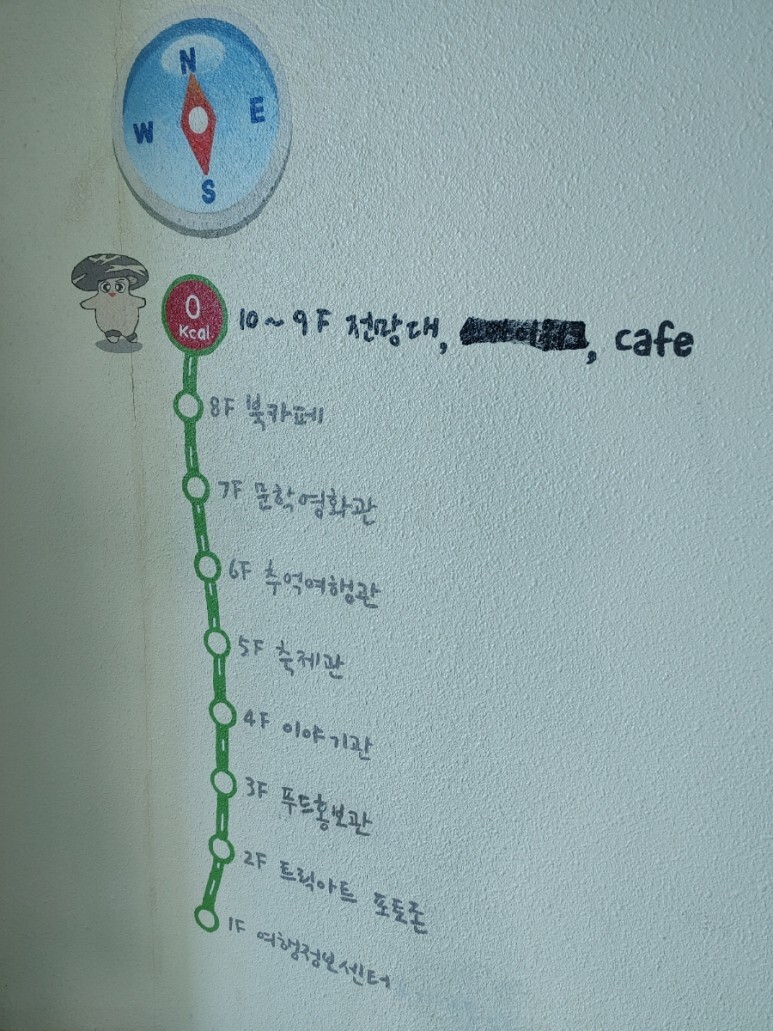 N
W E
S
0
Kcal.
10~9F 전망대, , cafe
8F 북카페
7F 문학영화관
6F 추억여행관
5F 축제관
4F 이야기관
3F 푸드홍보관
2F 트릭아트 포토존
1F 여행정보센터